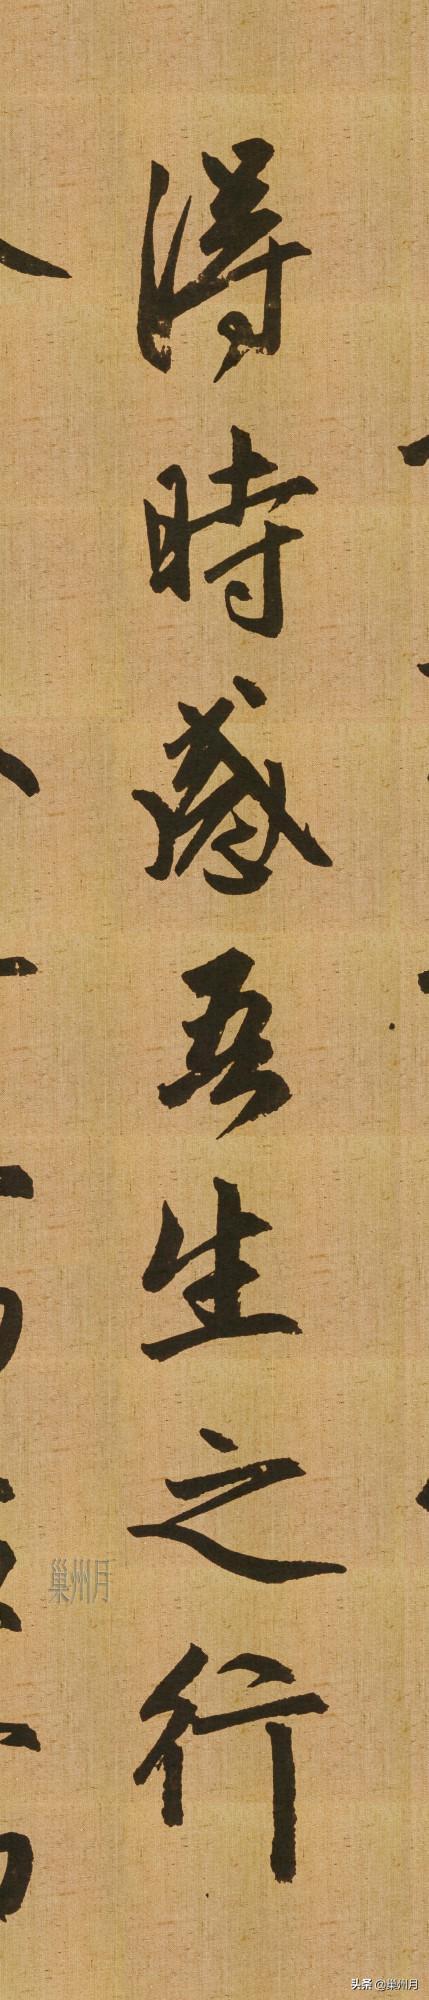 得時感吾生之行
巢州月
头条 @巢州月